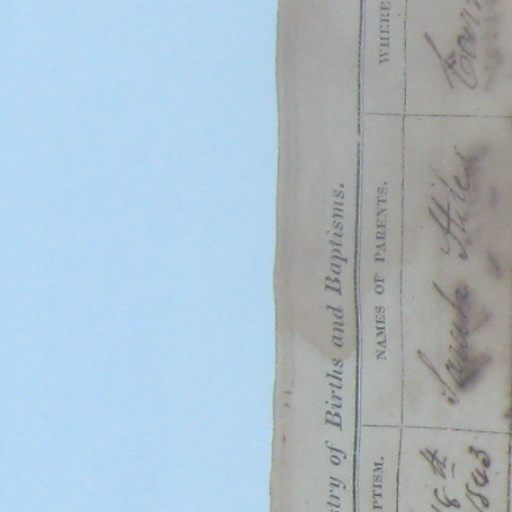 stry of Births and Baptisms.
PTISM. NAMES OF PARENTS. WHERE
18th Sarah Stiles
1843